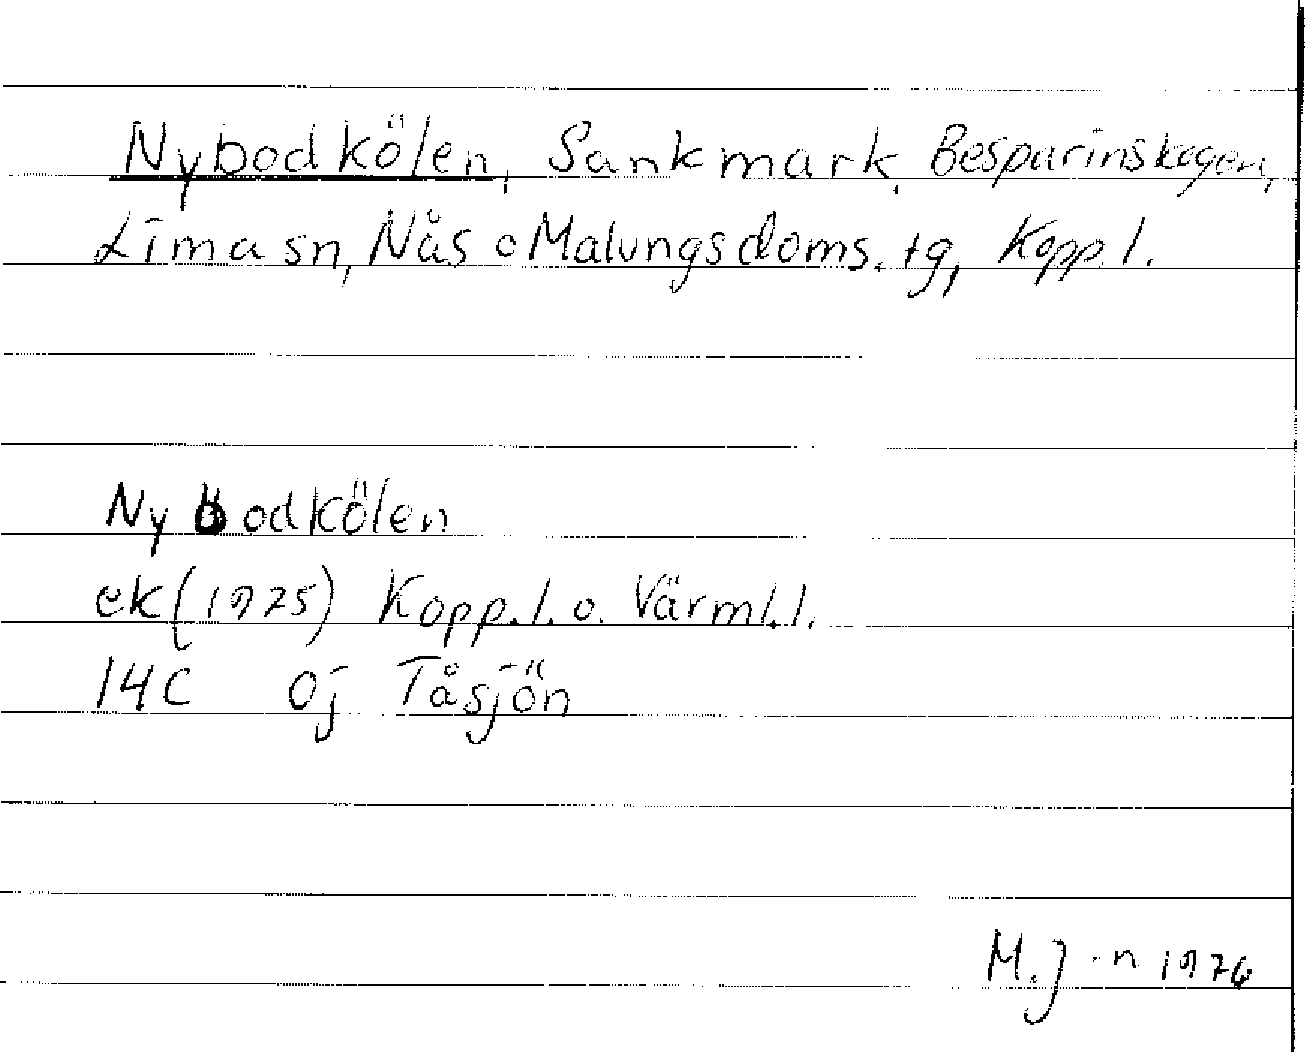 Nybodkölen, Sankmark, Besparinskogen,
Lima sn, Nås o Malungs doms. tg, Kopp. l.
Nybodkölen
ek (1975) Kopp. l. o. Värml. l.
14C 0j Tåsjön
M. J-n 1976